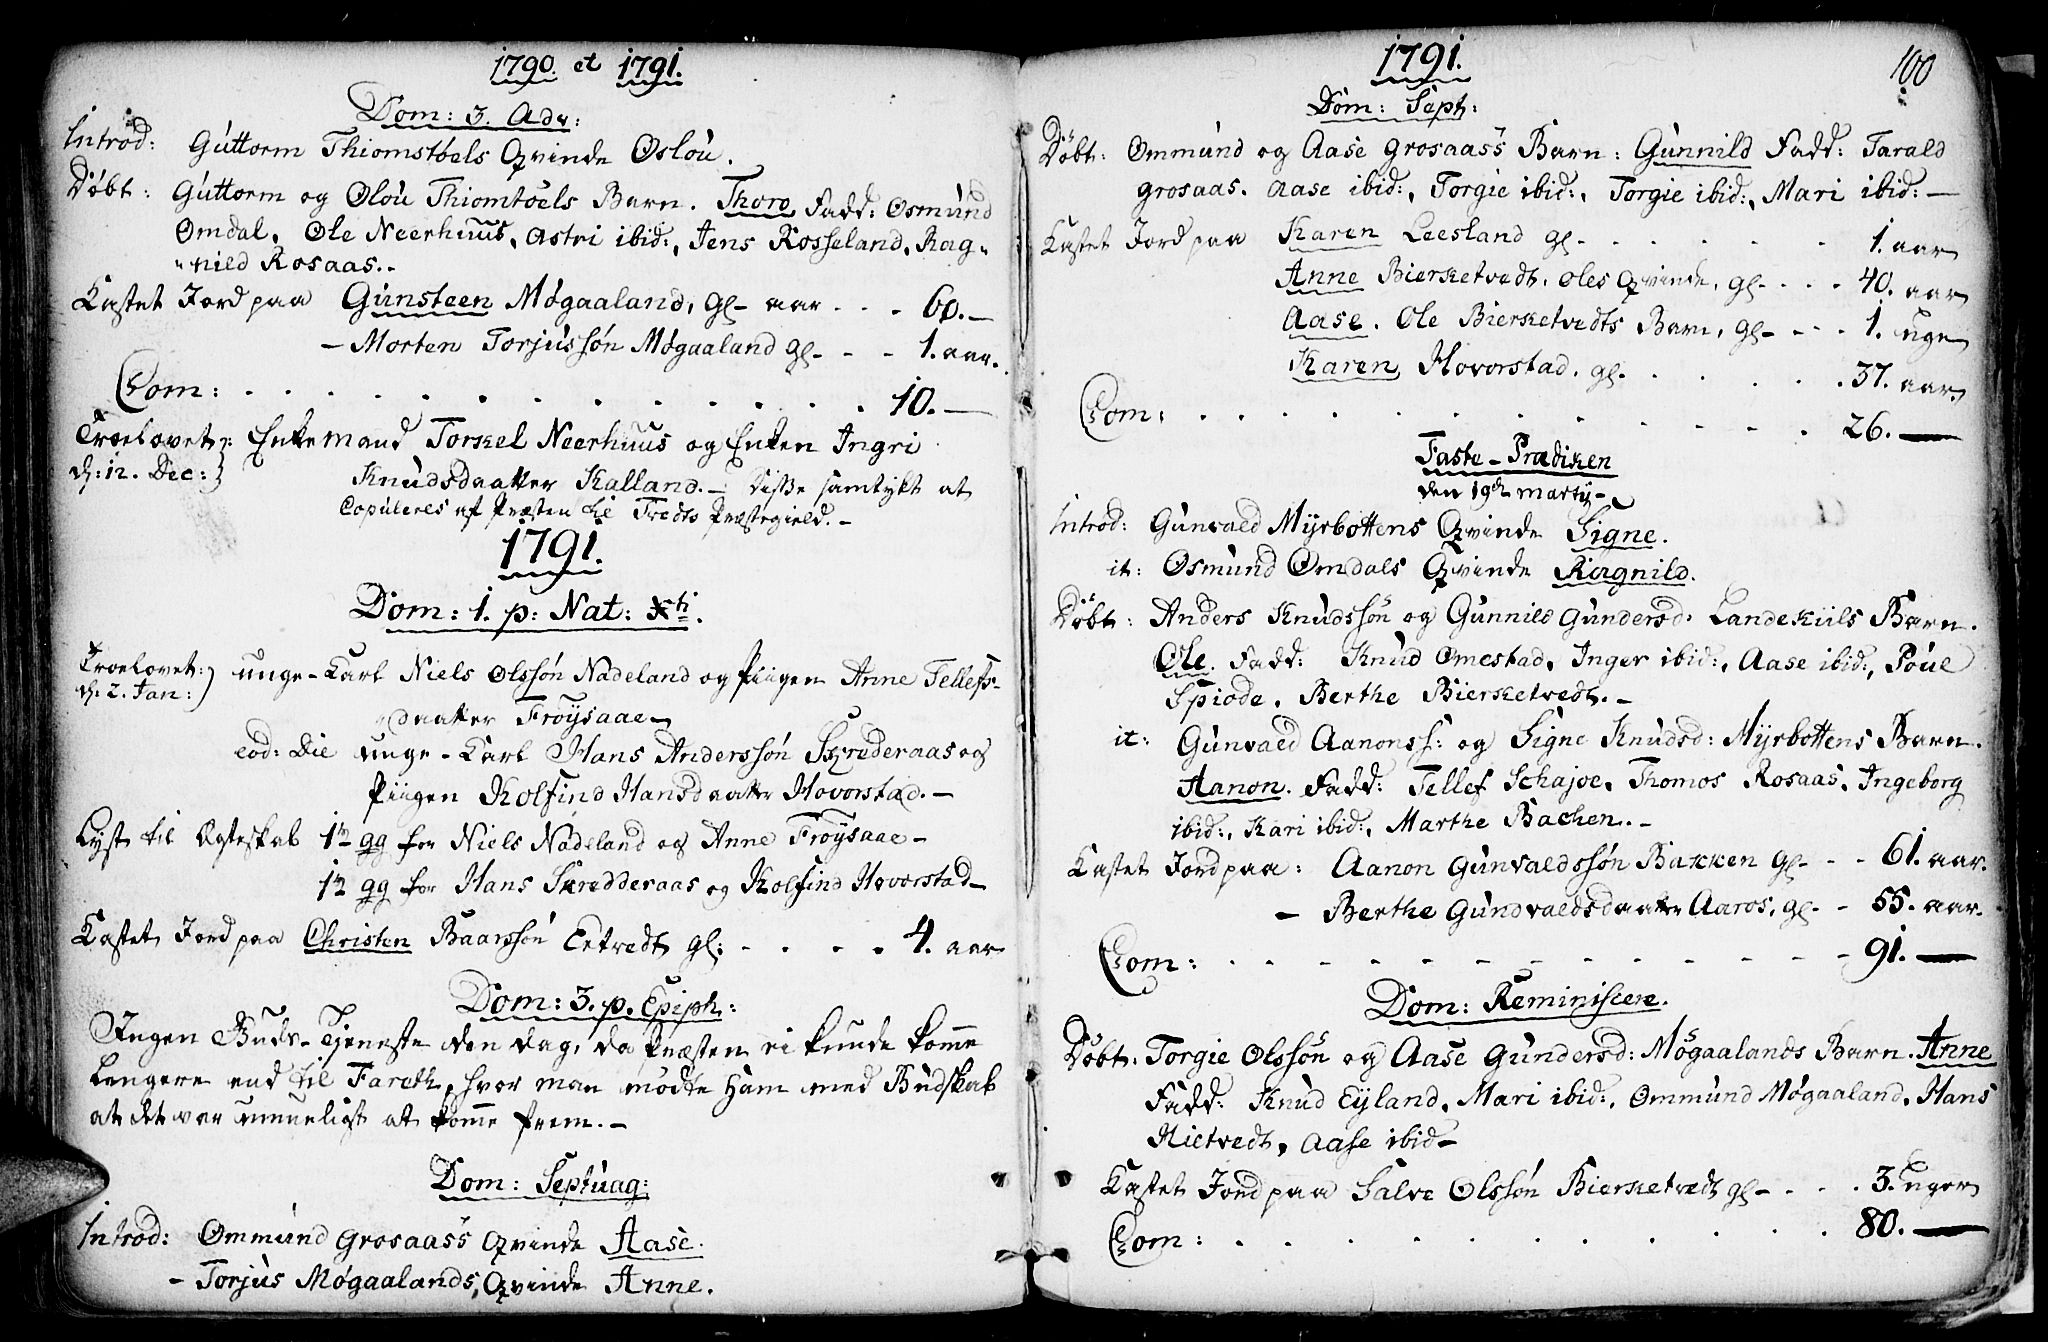 1790. et 1791.
Dom: 3. Adv:
Introd: Guttorm Thiomstøels Qvinde Oslou.
Døbt: Guttorm og Olou Thiomtøels Barn. Thoro Fadd: Osmund
Omdal, Ole Neerhuus, Astri ibid:, Jens Rosseland, Rag-
-nild Rosaas.-
Kastet Jord paa Gunsteen Møgaaland, gl- aar . . . 60.-
- Morten Torjussøn Møgaaland gl- - - 1. aar.
Com: . . . . . . . . . . . . 10.-
Troelovet: Enkemand Torkel Neerhuus og Enken Ingri
d: 12. Dec: Knudsdaatter Kalland.- Disse samtykt at
Copuleres af Præsten til Tredts Præstegield.-
1791.
Dom: 1. p: Nat: Xti.
Troelovet: unge-Karl Niels Olssøn Nadeland og Piigen Anne Tellefs-
d: 2. Jan: daatter Frøysaae-
eod: Die unge-Karl Hans Anderssøn Skrederaas og
Piigen Kolfind Hansdaatter Hovorstad.-
Lyst til Ægteskab 1te gg for Niels Nadeland og Anne Frøysaae-
1te gg for Hans Skredderaas og Kolfind Hovorstad-
Kastet Jord paa Christen Baarssøn Eetvedt gl: . . . . 4. aar
Dom: 3. p. Epiph:
Ingen Guds-Tjeneste den Dag, da Præsten ei kunde komme
lengere end til Fareth, hvor man mødte ham med Budskab
at det var umueligt at komme frem.-
Dom: Septuag:
Introd: Ommund Grosaass Qvinde Aase.
- Torjus Møgaalands, Qvinde Anne.
1791.
100
Dom: Sept:
Døbt: Ommund og Aase Grosaass Barn: Gunnild Fadd: Tarald
Grosaas. Aase ibid:, Torgie ibid:, Torgie ibid:, Mari ibid:-
Kastet Jord paa Karen Leesland gl- . . . . . . 1. aar
Anne Bierketvedt, Oles Qvinde, gl- . . . 40. aar
Aase. Ole Bierketvedts Barn, gl- - - - 1. uge
Karen Hovorstad, gl- . . . . . 37. aar.
Com: . . . . . . . . . . . 26.-
Faste-Prædiken
den 19de Martij-
Introd: Gunvald Myrbottens Qvinde Signe.
it: Osmund Omdals Qvinde Ragnild.
Døbt: Anders Knudssøn og Gunnild Gundersd: Landekiils Barn.
Ole. Fadd: Knud Omestad, Inger ibid:, Aase ibid:, Poul
Spiode, Berthe Bierketvedt.-
it: Gunvald Aanonss: og Signe Knudsd: Myrbottens Barn.
Aanon. Fadd: Tellef Schajoe, Thomos Rosaas, Ingeborg
ibid:, Kari ibid:, Marthe Bachen.-
Kastet Jord paa: Aanon Gunvaldssøn Bakken gl- - - 61. aar.
- Berthe Gundvaldsdaatter Aaros, gl- - 55. aar.
Com: - - - - - - - - - - - 91.-
Dom: Reminiscere.
Døbt: Torgie Olssøn og Aase Gundersd: Møgaalands Barn. Anne
Fadd: Knud Eyland, Mari ibid:, Ommund Møgaaland, Hans
Hietvedt, Aase ibid-
Kastet Jord paa Salve Olssøn Bierketvedt gl- . . . . 3. Uger
Com: . . . . . . . . . . . 80.-